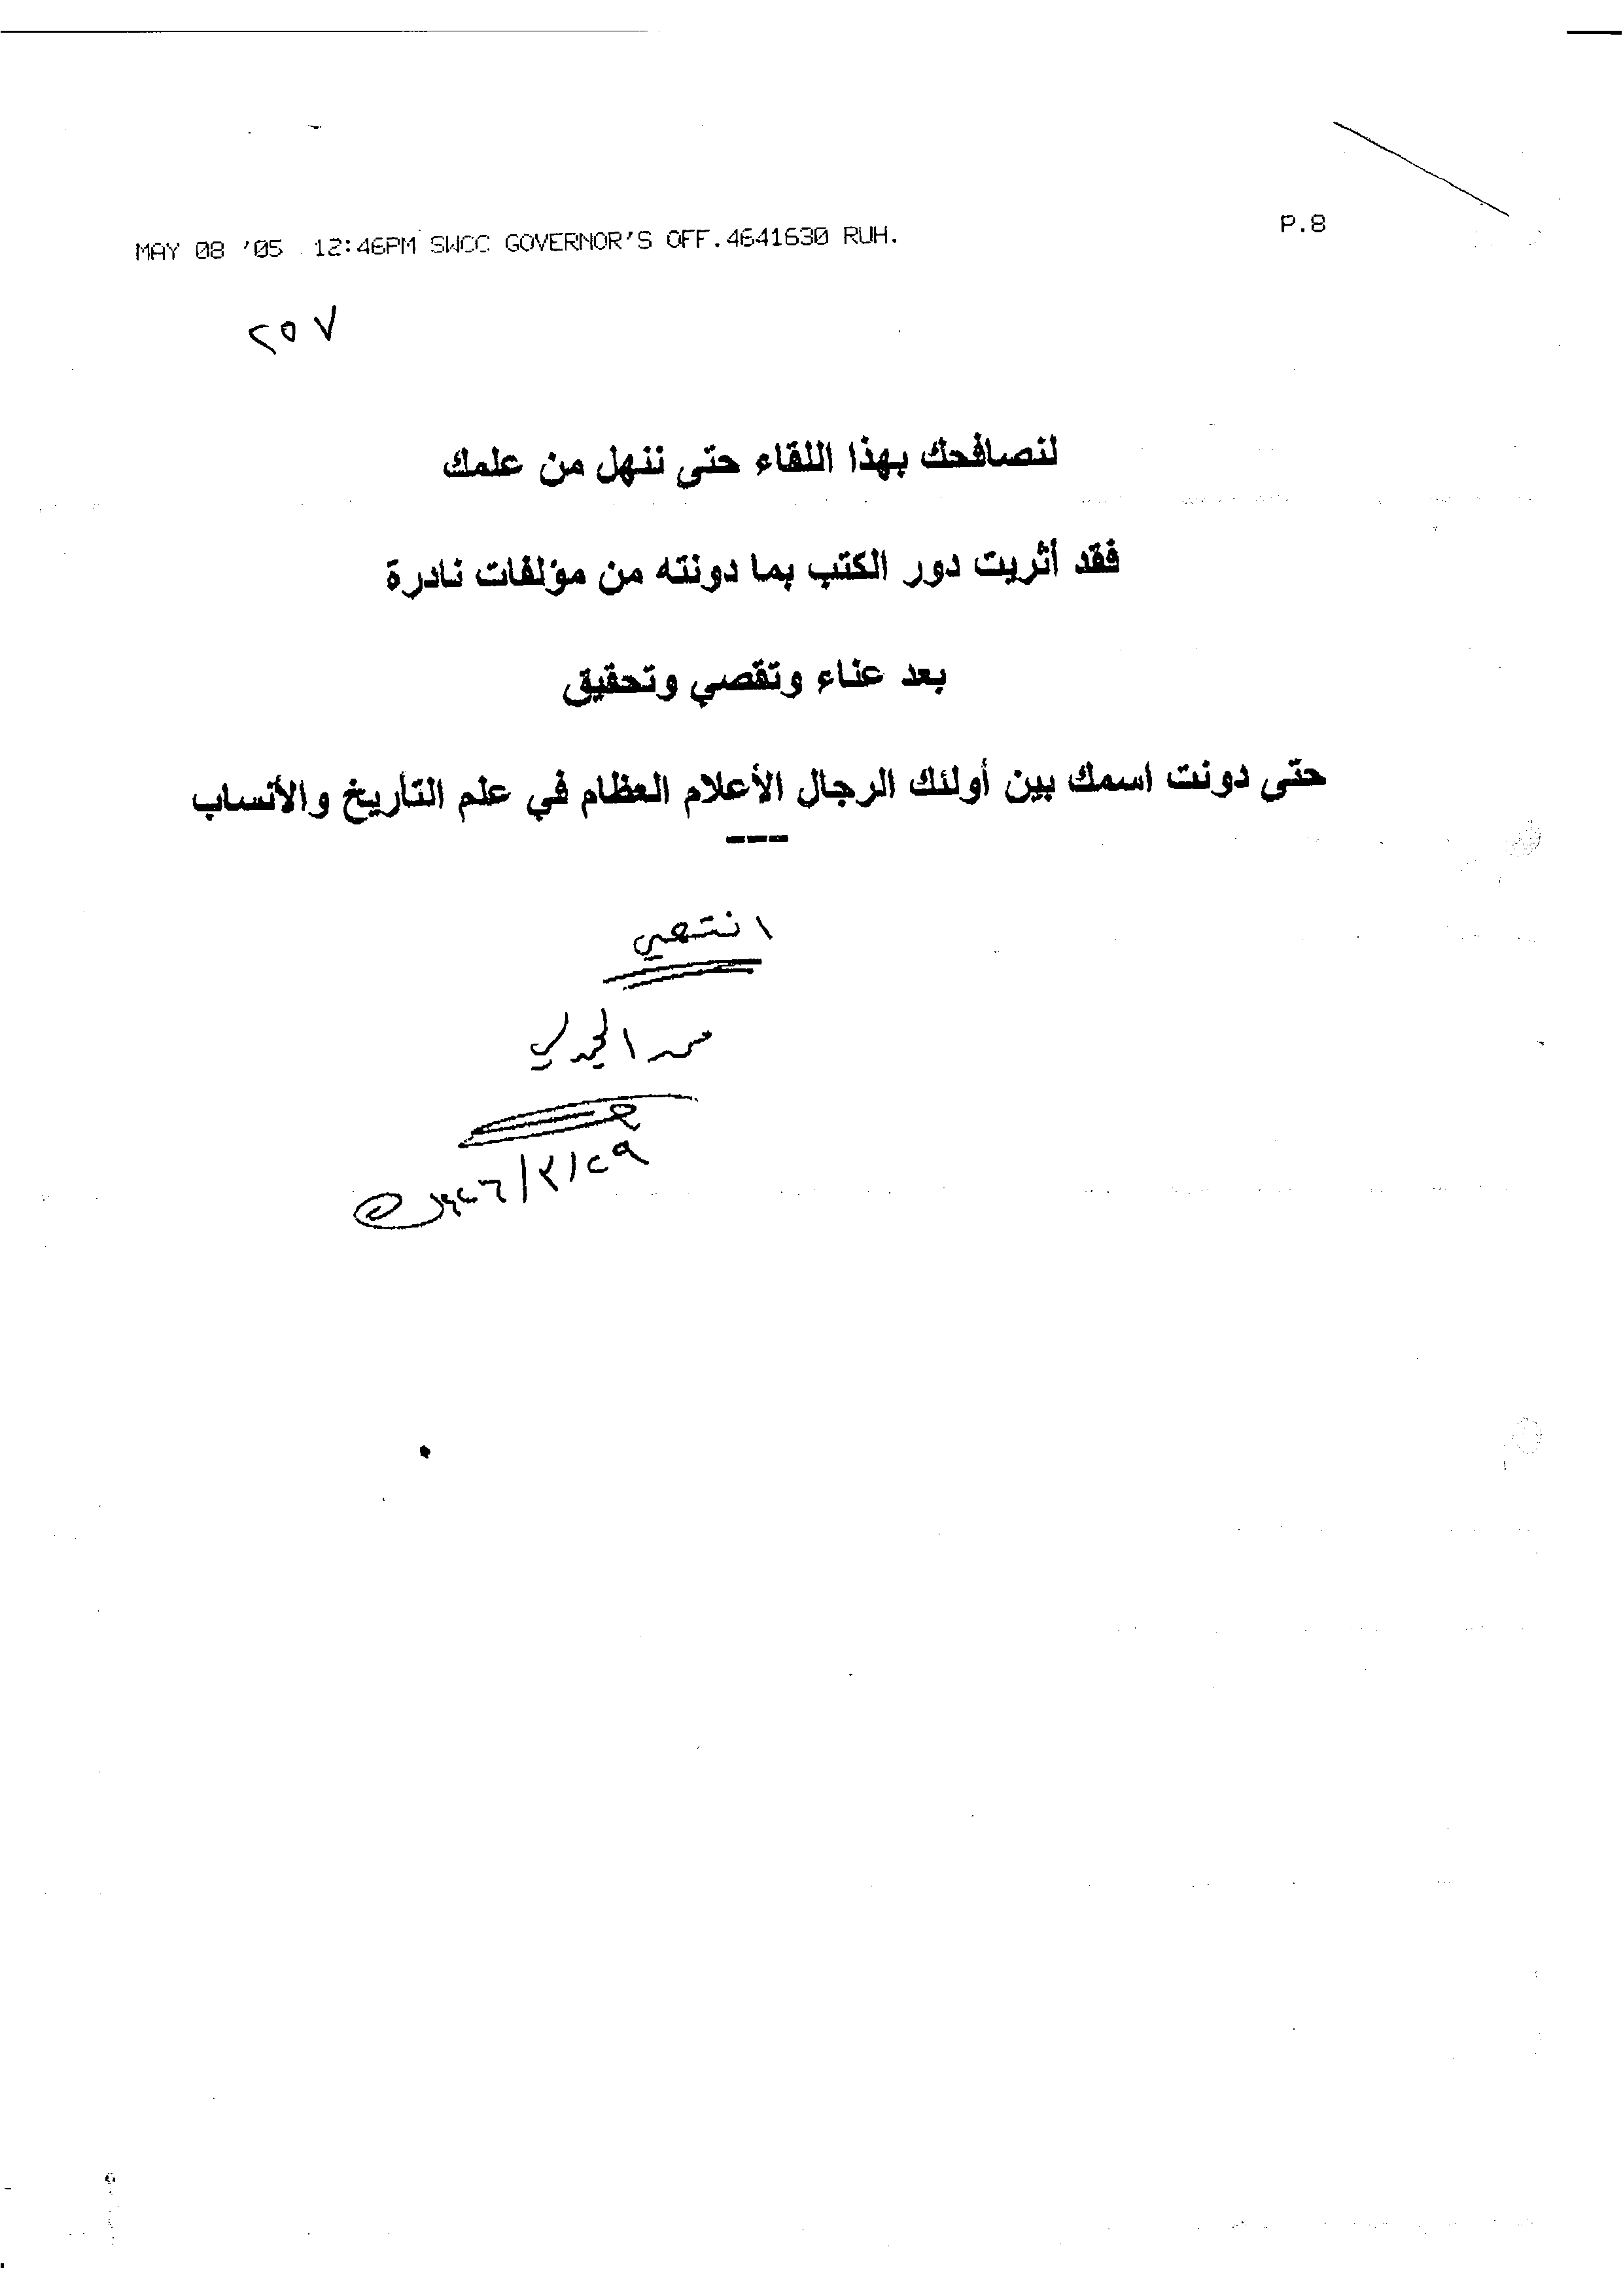 MAY 08 '05 12:46PM SWCC GOVERNOR'S OFF.4641630 RUH. P.8
٢٥٧
لنصافحك بهذا اللقاء حتى ننهل من علمك
فقد أثريت دور الكتب بما دونته من مؤلفات نادرة
بعد عناء وتقصي وتحقيق
حتى دونت اسمك بين أولئك الرجال الأعلام العظام في علم التأريخ والأنساب
---
انتهى